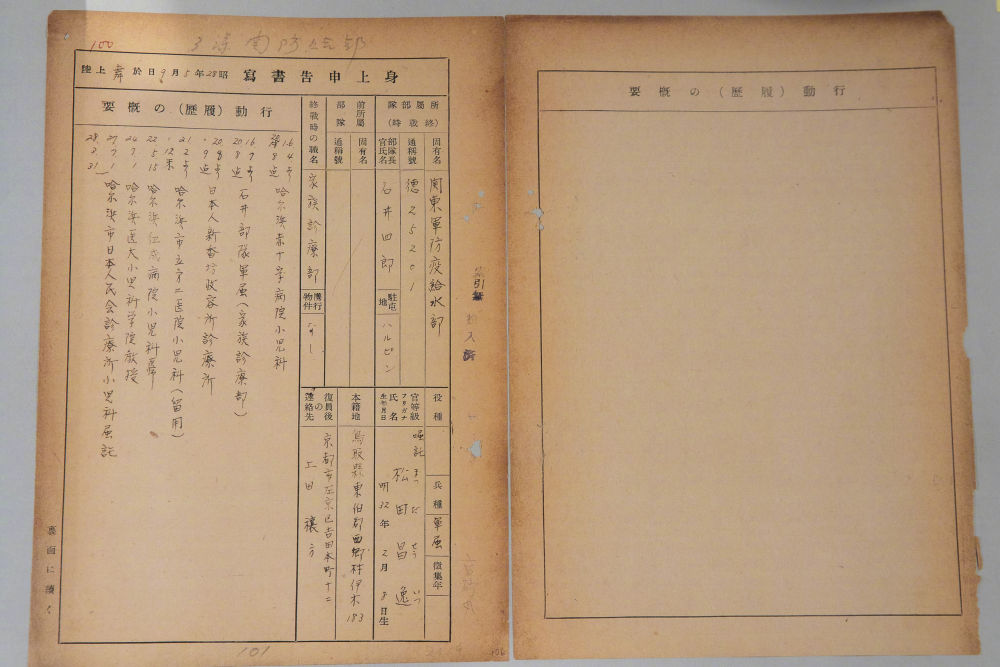 100
身上申告書寫 昭28年5月9日於舞上陸
所屬部隊(終戰時)
固有名 関東軍防疫給水部
通稱號 德25201
部隊長官氏名 石井四郎
駐屯地 ハルピン
前所屬部隊
固有名
通稱號
終戰時の職名 家族診療部
携行物件 なし
役種
兵種 軍属
徵集年
官等級 嘱託
フリガナ まつだ せういつ
氏名 松田昌逸
生年月日 明32年2月8日生
本籍地 鳥取縣東伯郡西郷村伊木183
復員後の連絡先 京都市左京区吉田本町十二
上田穰方
行動(履歷)の概要
16 4 哈尓浜赤十字病院小児科
16 7 20 8 石井部隊軍属(家族診療部)
20 8 9 日本人新香坊政容所診療所
21 2 12末 哈尓浜市立第二医院小児科(留用)
22 5 15 哈尓浜仁成病院小児科
24 7 1 哈尓浜医大小児科学院教授
27 7 1 28 3 31 哈尓浜市日本人民会診療所小児科属託
裏面に續く
101
行動(履歷)の概要
106